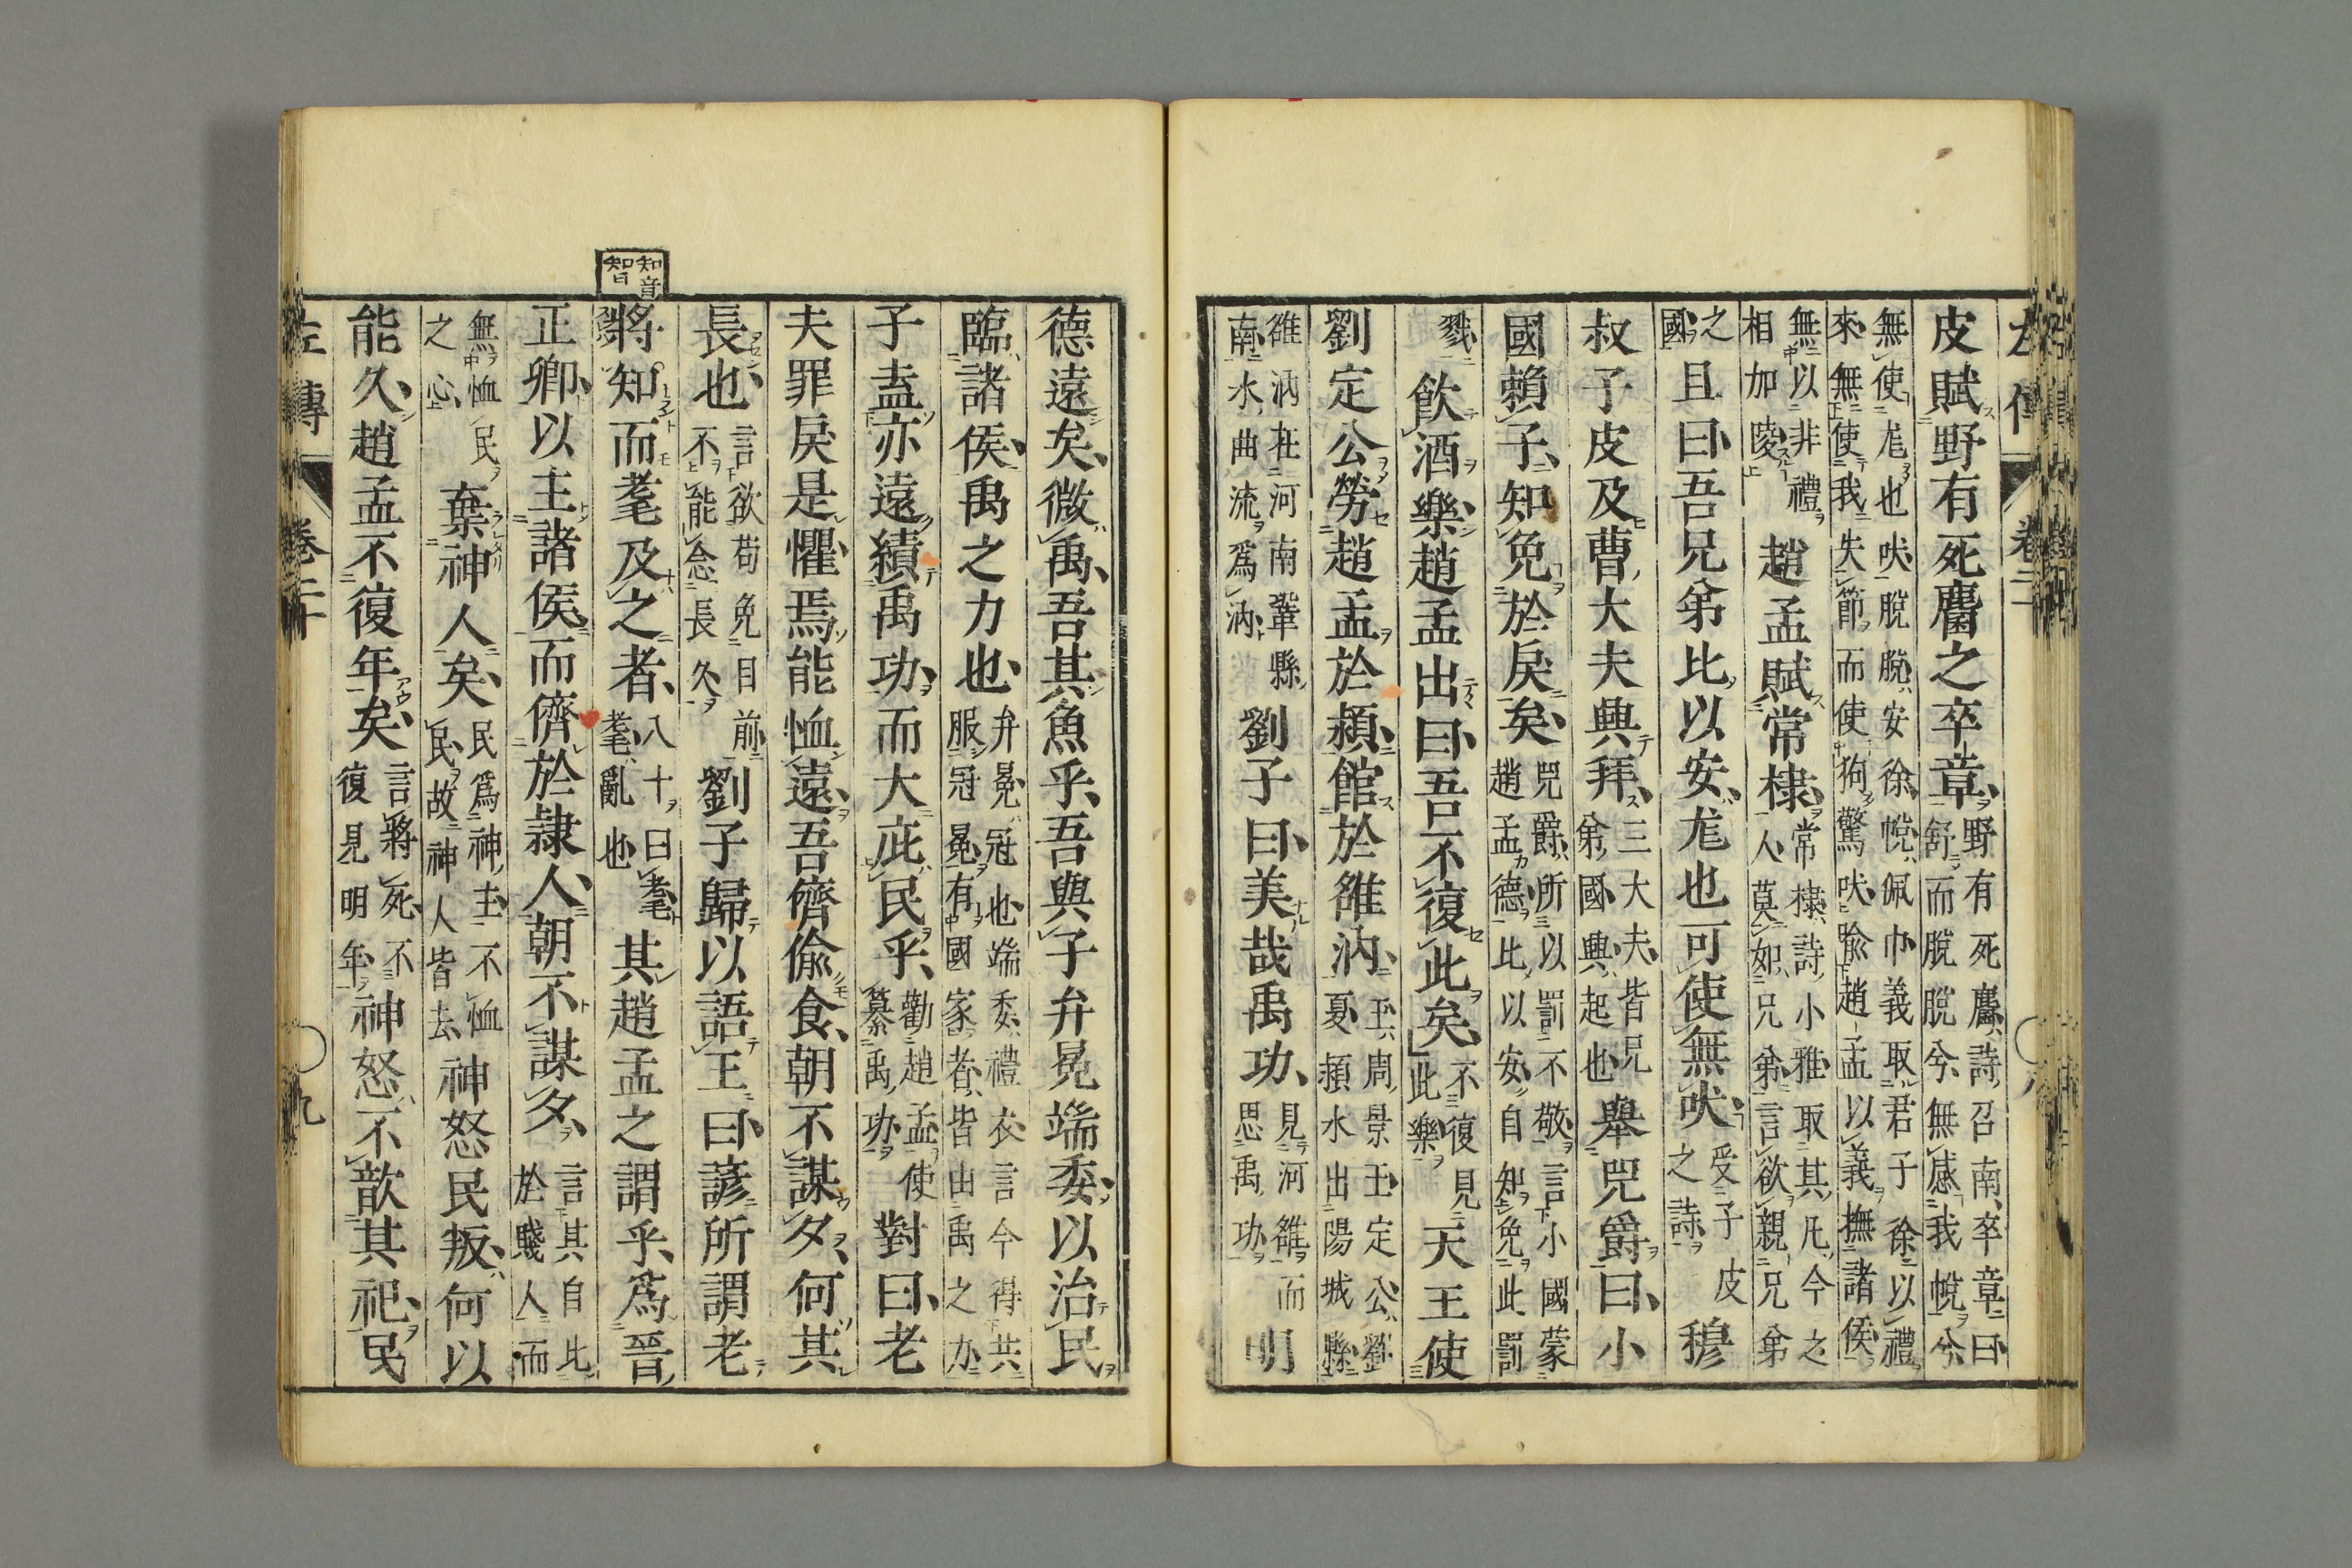 左傳 卷二十
皮賦野有死麕之卒章野有死麕詩召南卒章曰舒而脫脫兮無感我帨兮
無使尨也吠脫脫安徐帨佩巾義取君子徐以禮來無使我失節而使狗驚吠喩趙孟以義撫諸侯
無以非禮相加陵趙孟賦常棣常棣詩小雅取其凡今之人莫如兄弟言欲親兄弟
之國且曰吾兄弟比以安尨也可使無吠受子皮之詩穆
叔子皮及曹大夫興拜三大夫皆兄弟國興起也舉兕爵曰小
國賴子知免於戾矣兕爵所以罰不敬言小國蒙趙孟德比以安自知免此罰
戮飮酒樂趙孟出曰吾不復此矣不復見此樂天王使
劉定公勞趙孟於潁館於雒汭王周景王定公劉夏潁水出陽城縣
雒汭在河南鞏縣南水曲流爲汭劉子曰美哉禹功見河雒而思禹功明
德遠矣微禹吾其魚乎吾與子弁冕端委以治民
臨諸侯禹之力也弁冕冠也端委禮衣言今得共服冠冕有國家者皆由禹之力
子盍亦遠績禹功而大庇民乎勸趙孟使纂禹功對曰老
夫罪戾是懼焉能恤遠吾儕偸食朝不謀夕何其
長也言欲苟免目前不能念長久劉子歸以語王曰諺所謂老
知音智
將知而耄及之者八十曰耄耄亂也其趙孟之謂乎爲晉
正卿以主諸侯而儕於隸人朝不謀夕言其自比於賤人而
無恤民之心棄神人矣民爲神主不恤民故神人皆去神怒民叛何以
能久趙孟不復年矣言將死不復見明年神怒不歆其祀民
左傳 卷二十 九